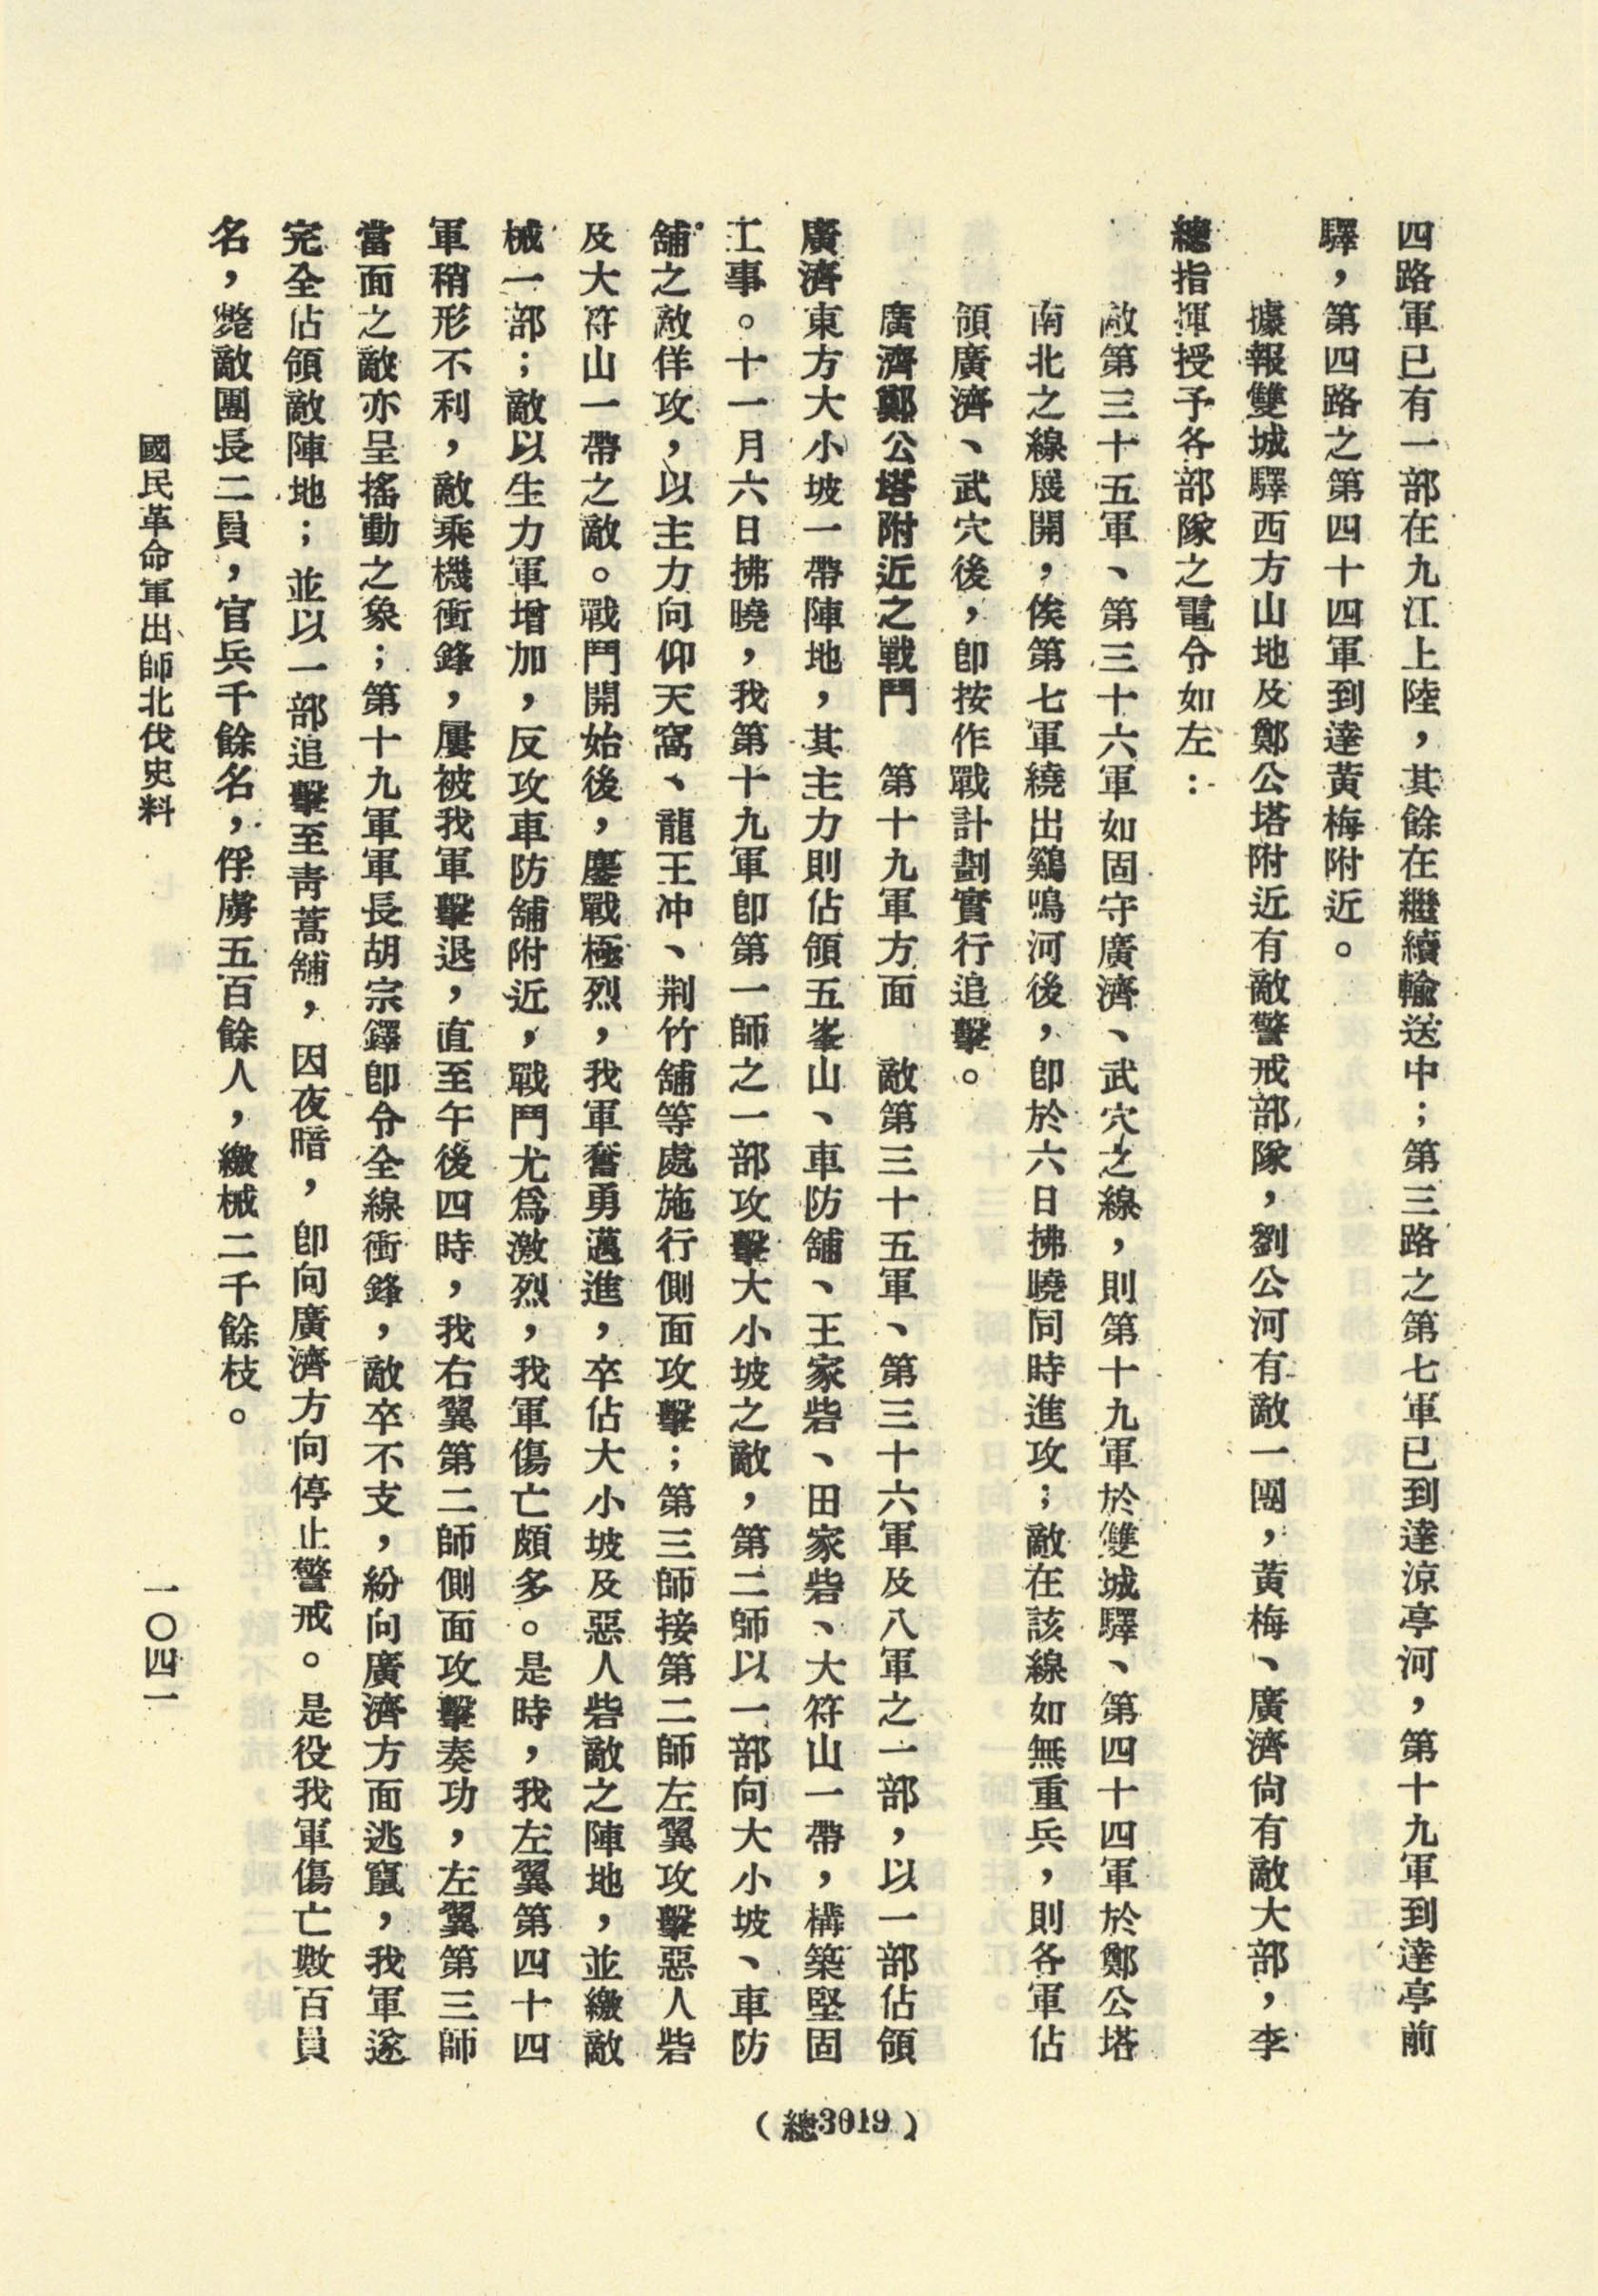 四路軍已有一部在九江上陸，其餘在繼續輸送中；第三路之第七軍已到達涼亭河，第十九軍到達亭前
驛，第四路之第四十四軍到達黃梅附近。
據報雙城驛西方山地及鄭公塔附近有敵警戒部隊，劉公河有敵一團，黃梅、廣濟尙有敵大部，李
總指揮授予各部隊之電令如左：
敵第三十五軍、第三十六軍如固守廣濟、武穴之線，則第十九軍於雙城驛、第四十四軍於鄭公塔
南北之線展開，俟第七軍繞出鷄鳴河後，卽於六日拂曉同時進攻；敵在該線如無重兵，則各軍佔
領廣濟、武穴後，卽按作戰計劃實行追擊。
廣濟鄭公塔附近之戰鬥　第十九軍方面　敵第三十五軍、第三十六軍及八軍之一部，以一部佔領
廣濟東方大小坡一帶陣地，其主力則佔領五峯山、車防舖、王家砦、田家砦、大符山一帶，構築堅固
工事。十一月六日拂曉，我第十九軍卽第一師之一部攻擊大小坡之敵，第二師以一部向大小坡、車防
舖之敵佯攻，以主力向仰天窩、龍王冲、荆竹舖等處施行側面攻擊；第三師接第二師左翼攻擊惡人砦
及大符山一帶之敵。戰鬥開始後，鏖戰極烈，我軍奮勇邁進，卒佔大小坡及惡人砦敵之陣地，並繳敵
械一部；敵以生力軍增加，反攻車防舖附近，戰鬥尤爲激烈，我軍傷亡頗多。是時，我左翼第四十四
軍稍形不利，敵乘機衝鋒，屢被我軍擊退，直至午後四時，我右翼第二師側面攻擊奏功，左翼第三師
當面之敵亦呈搖動之象；第十九軍軍長胡宗鐸卽令全線衝鋒，敵卒不支，紛向廣濟方面逃竄，我軍遂
完全佔領敵陣地；並以一部追擊至靑蒿舖，因夜暗，卽向廣濟方向停止警戒。是役我軍傷亡數百員
名，斃敵團長二員，官兵千餘名，俘虜五百餘人，繳械二千餘枝。
國民革命軍出師北伐史料
一〇四一
（總3019）